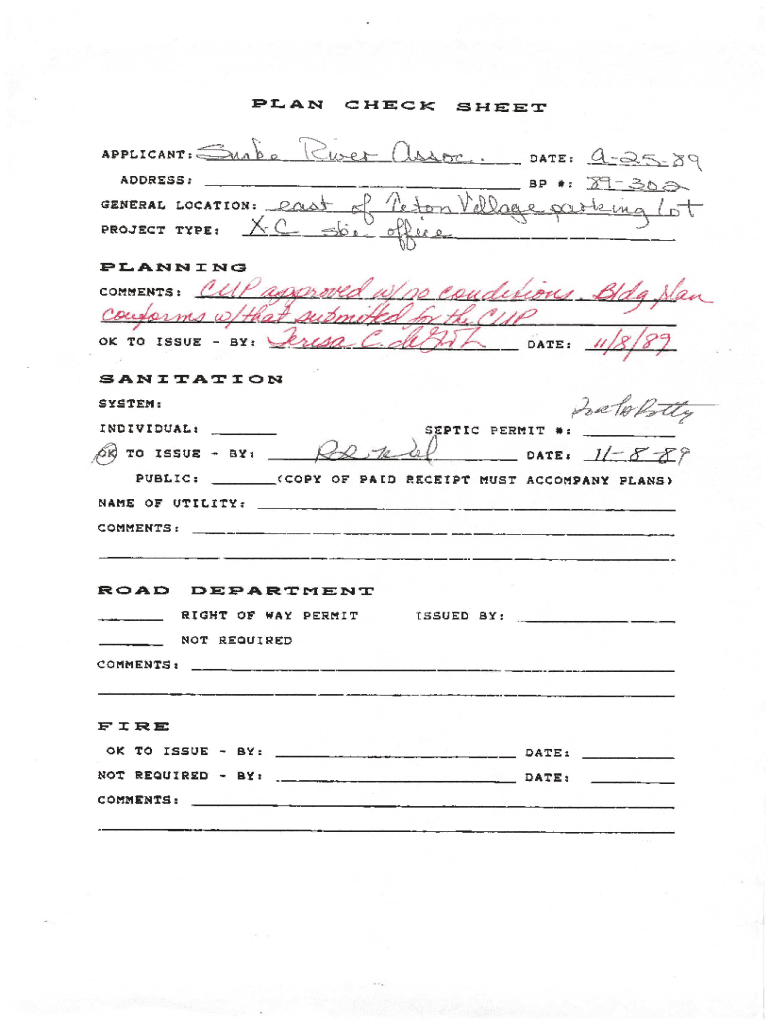 PLAN CHECK SHEET
APPLICANT: Snake River Assoc. DATE: 9-25-89
ADDRESS: BP #: 89-302
GENERAL LOCATION: east of Teton Village parking lot
PROJECT TYPE: X-C ski office
PLANNING
COMMENTS: CUP approved w/no conditions. Bldg plan
conforms w/that submitted for the CUP
OK TO ISSUE - BY: Teresa C. DATE: 11/8/89
SANITATION
SYSTEM:
INDIVIDUAL: SEPTIC PERMIT #: Porta Potty
OK TO ISSUE - BY: DATE: 11-8-89
PUBLIC: (COPY OF PAID RECEIPT MUST ACCOMPANY PLANS)
NAME OF UTILITY:
COMMENTS:
ROAD DEPARTMENT
RIGHT OF WAY PERMIT ISSUED BY:
NOT REQUIRED
COMMENTS:
FIRE
OK TO ISSUE - BY: DATE:
NOT REQUIRED - BY: DATE:
COMMENTS: